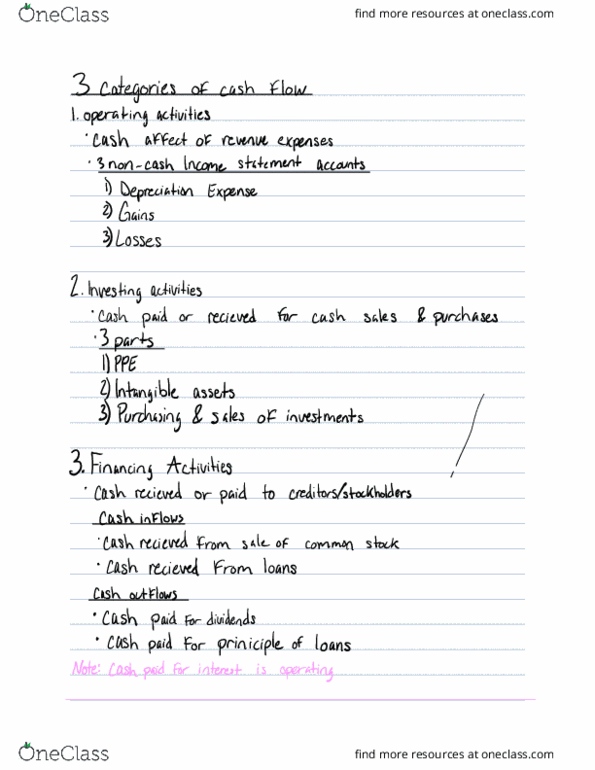 OneClass
find more resources at oneclass.com
3 Categories of cash flow
1. operating activities
· Cash affect of revenue expenses
· 3 non-cash Income statement accounts
1) Depreciation Expense
2) Gains
3) Losses
2. Investing activities
· Cash paid or recieved for cash sales & purchases
· 3 parts
1) PPE
2) Intangible assets
3) Purchasing & sales of investments
3. Financing Activities
· Cash recieved or paid to creditors/stockholders
Cash inflows
· Cash recieved from sale of common stock
· Cash recieved from loans
Cash outflows
· Cash paid for dividends
· Cash paid for priniciple of loans
Note: Cash paid for interest is operating
OneClass
find more resources at oneclass.com